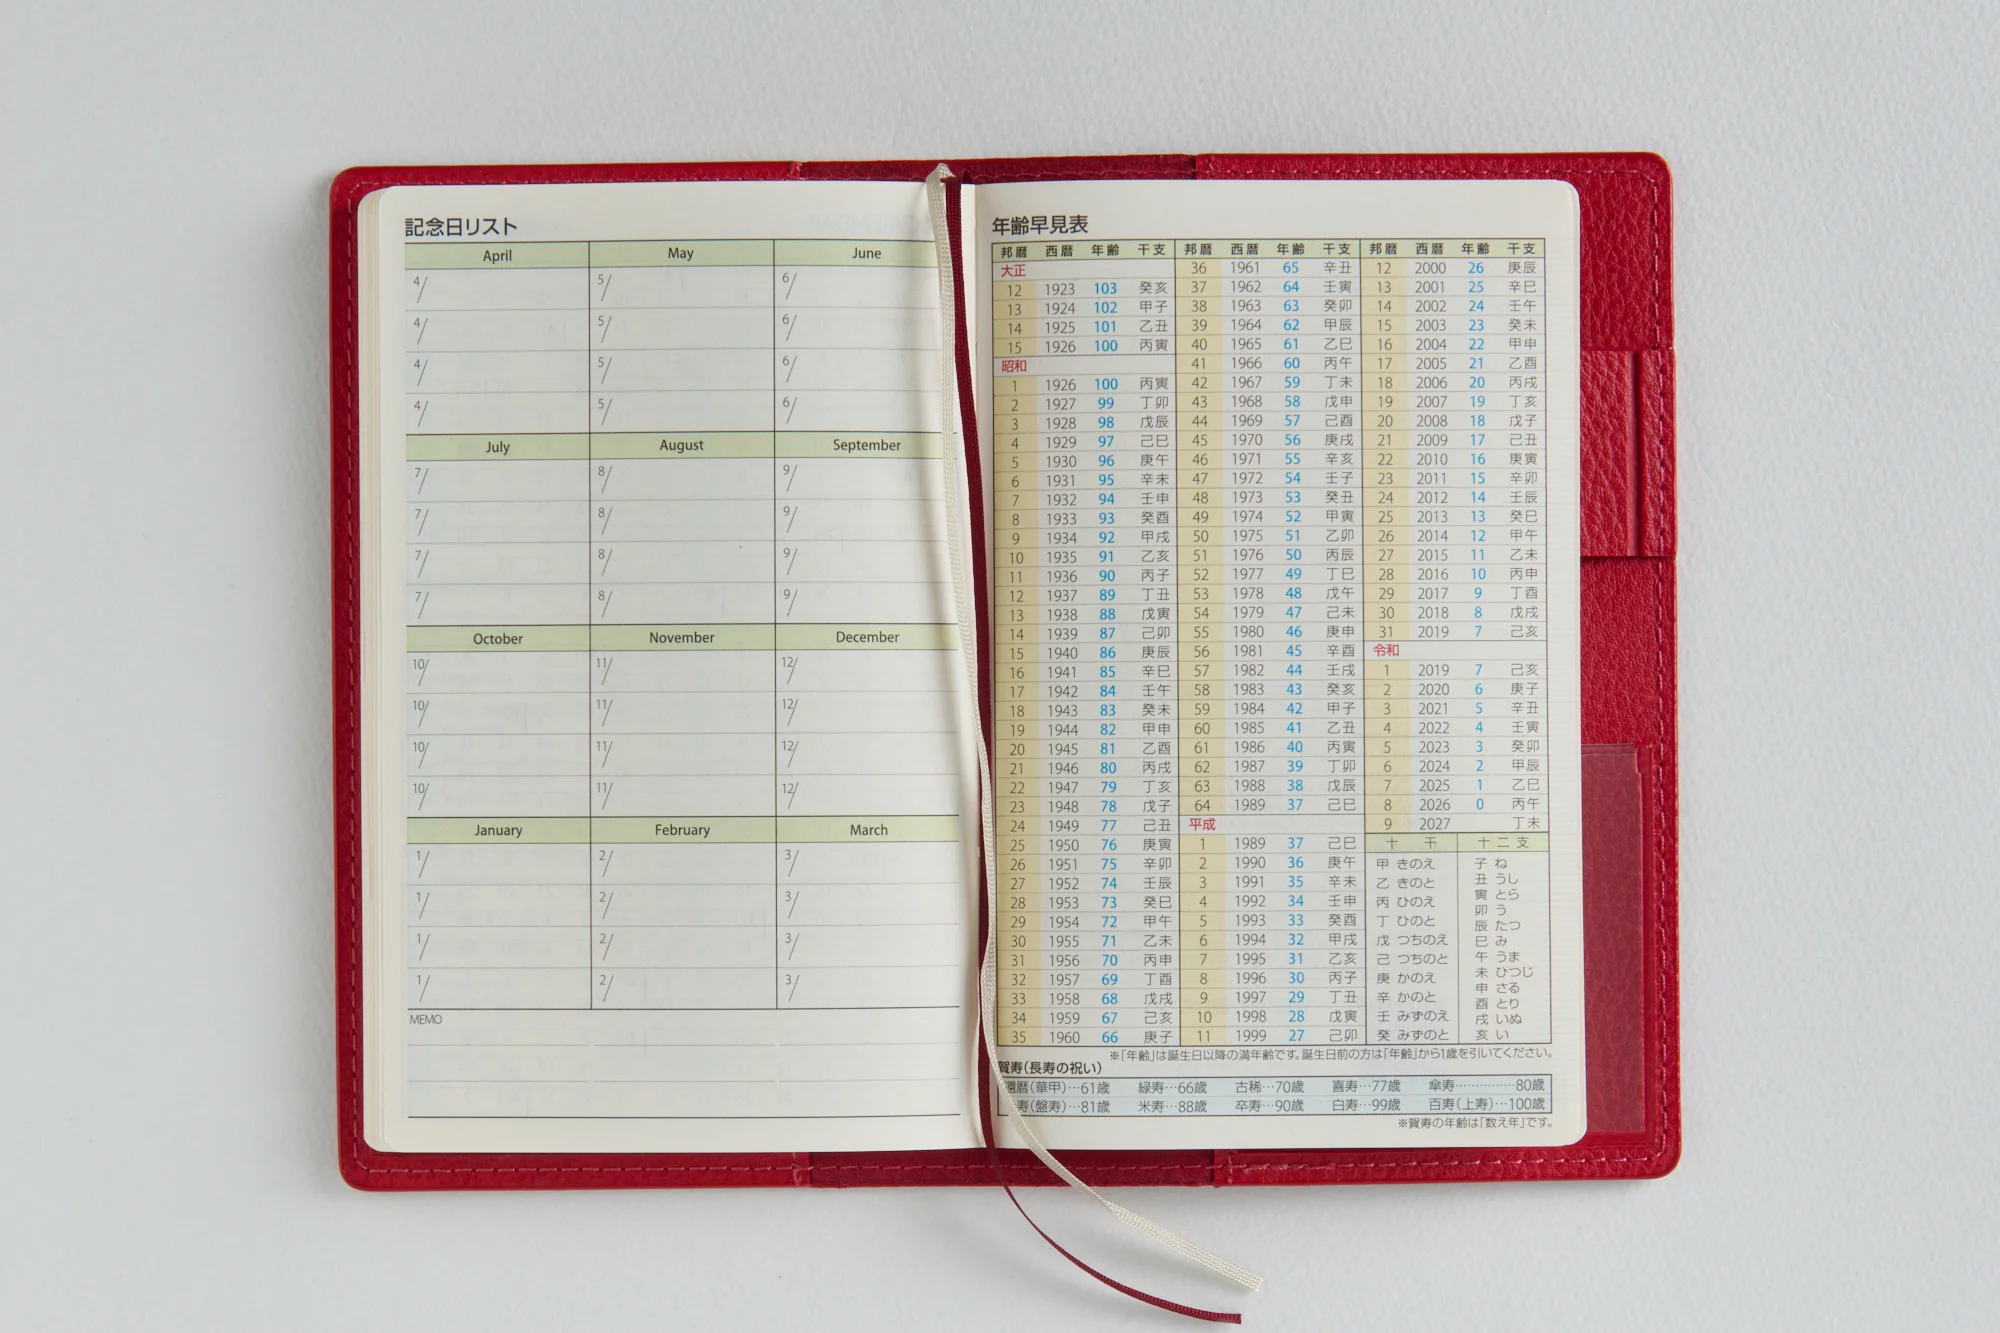 記念日リスト
April May June
4/ 5/ 6/
4/ 5/ 6/
4/ 5/ 6/
4/ 5/ 6/
July August September
7/ 8/ 9/
7/ 8/ 9/
7/ 8/ 9/
7/ 8/ 9/
October November December
10/ 11/ 12/
10/ 11/ 12/
10/ 11/ 12/
10/ 11/ 12/
January February March
1/ 2/ 3/
1/ 2/ 3/
1/ 2/ 3/
1/ 2/ 3/
MEMO
年齢早見表
邦暦 西暦 年齢 干支
大正
12 1923 103 癸亥
13 1924 102 甲子
14 1925 101 乙丑
15 1926 100 丙寅
昭和
1 1926 100 丙寅
2 1927 99 丁卯
3 1928 98 戊辰
4 1929 97 己巳
5 1930 96 庚午
6 1931 95 辛未
7 1932 94 壬申
8 1933 93 癸酉
9 1934 92 甲戌
10 1935 91 乙亥
11 1936 90 丙子
12 1937 89 丁丑
13 1938 88 戊寅
14 1939 87 己卯
15 1940 86 庚辰
16 1941 85 辛巳
17 1942 84 壬午
18 1943 83 癸未
19 1944 82 甲申
20 1945 81 乙酉
21 1946 80 丙戌
22 1947 79 丁亥
23 1948 78 戊子
24 1949 77 己丑
25 1950 76 庚寅
26 1951 75 辛卯
27 1952 74 壬辰
28 1953 73 癸巳
29 1954 72 甲午
30 1955 71 乙未
31 1956 70 丙申
32 1957 69 丁酉
33 1958 68 戊戌
34 1959 67 己亥
35 1960 66 庚子
邦暦 西暦 年齢 干支
36 1961 65 辛丑
37 1962 64 壬寅
38 1963 63 癸卯
39 1964 62 甲辰
40 1965 61 乙巳
41 1966 60 丙午
42 1967 59 丁未
43 1968 58 戊申
44 1969 57 己酉
45 1970 56 庚戌
46 1971 55 辛亥
47 1972 54 壬子
48 1973 53 癸丑
49 1974 52 甲寅
50 1975 51 乙卯
51 1976 50 丙辰
52 1977 49 丁巳
53 1978 48 戊午
54 1979 47 己未
55 1980 46 庚申
56 1981 45 辛酉
57 1982 44 壬戌
58 1983 43 癸亥
59 1984 42 甲子
60 1985 41 乙丑
61 1986 40 丙寅
62 1987 39 丁卯
63 1988 38 戊辰
64 1989 37 己巳
平成
1 1989 37 己巳
2 1990 36 庚午
3 1991 35 辛未
4 1992 34 壬申
5 1993 33 癸酉
6 1994 32 甲戌
7 1995 31 乙亥
8 1996 30 丙子
9 1997 29 丁丑
10 1998 28 戊寅
11 1999 27 己卯
邦暦 西暦 年齢 干支
12 2000 26 庚辰
13 2001 25 辛巳
14 2002 24 壬午
15 2003 23 癸未
16 2004 22 甲申
17 2005 21 乙酉
18 2006 20 丙戌
19 2007 19 丁亥
20 2008 18 戊子
21 2009 17 己丑
22 2010 16 庚寅
23 2011 15 辛卯
24 2012 14 壬辰
25 2013 13 癸巳
26 2014 12 甲午
27 2015 11 乙未
28 2016 10 丙申
29 2017 9 丁酉
30 2018 8 戊戌
31 2019 7 己亥
令和
1 2019 7 己亥
2 2020 6 庚子
3 2021 5 辛丑
4 2022 4 壬寅
5 2023 3 癸卯
6 2024 2 甲辰
7 2025 1 乙巳
8 2026 0 丙午
9 2027 丁未
十干
甲 きのえ
乙 きのと
丙 ひのえ
丁 ひのと
戊 つちのえ
己 つちのと
庚 かのえ
辛 かのと
壬 みずのえ
癸 みずのと
十二支
子 ね
丑 うし
寅 とら
卯 う
辰 たつ
巳 み
午 うま
未 ひつじ
申 さる
酉 とり
戌 いぬ
亥 い
※「年齢」は誕生日以降の満年齢です。誕生日前の方は「年齢」から1歳を引いてください。
賀寿(長寿の祝い)
暦(華甲)…61歳 緑寿…66歳 古稀…70歳 喜寿…77歳 傘寿…………80歳
寿(盤寿)…81歳 米寿…88歳 卒寿…90歳 白寿…99歳 百寿(上寿)…100歳
※賀寿の年齢は「数え年」です。